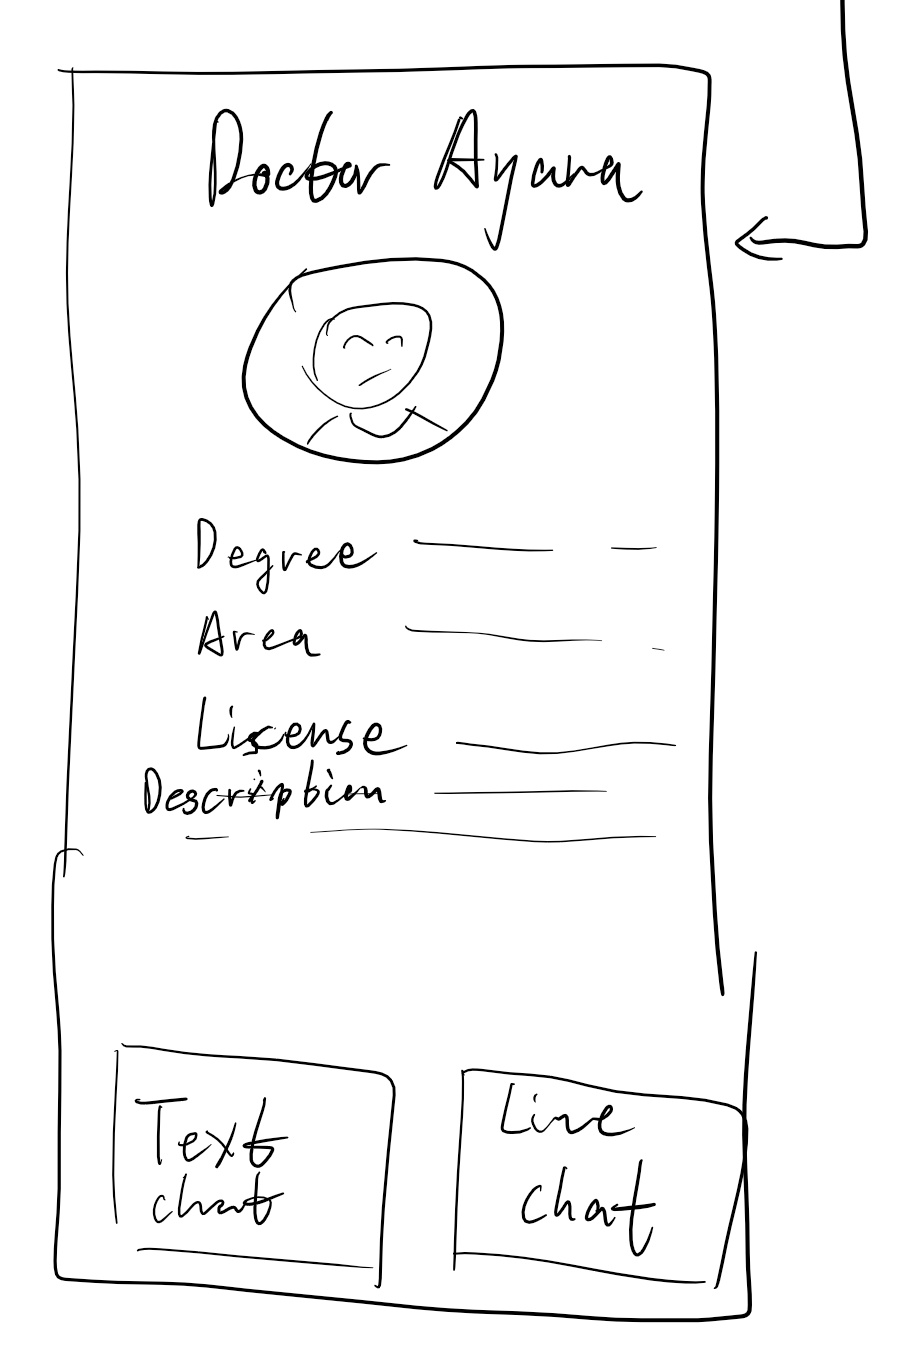 Doctor Ayana
Degree
Area
Liscense
Description
Text
chat
Live
chat